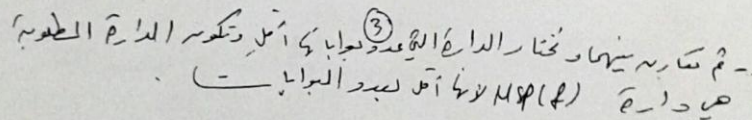 - ثم نقارن بينهما ونختار الدارة التي عدد بواباتها أقل وتكون الدارة المطلوبة
3
هي دارة MSP(f) لأنها أقل بعدد البوابات.